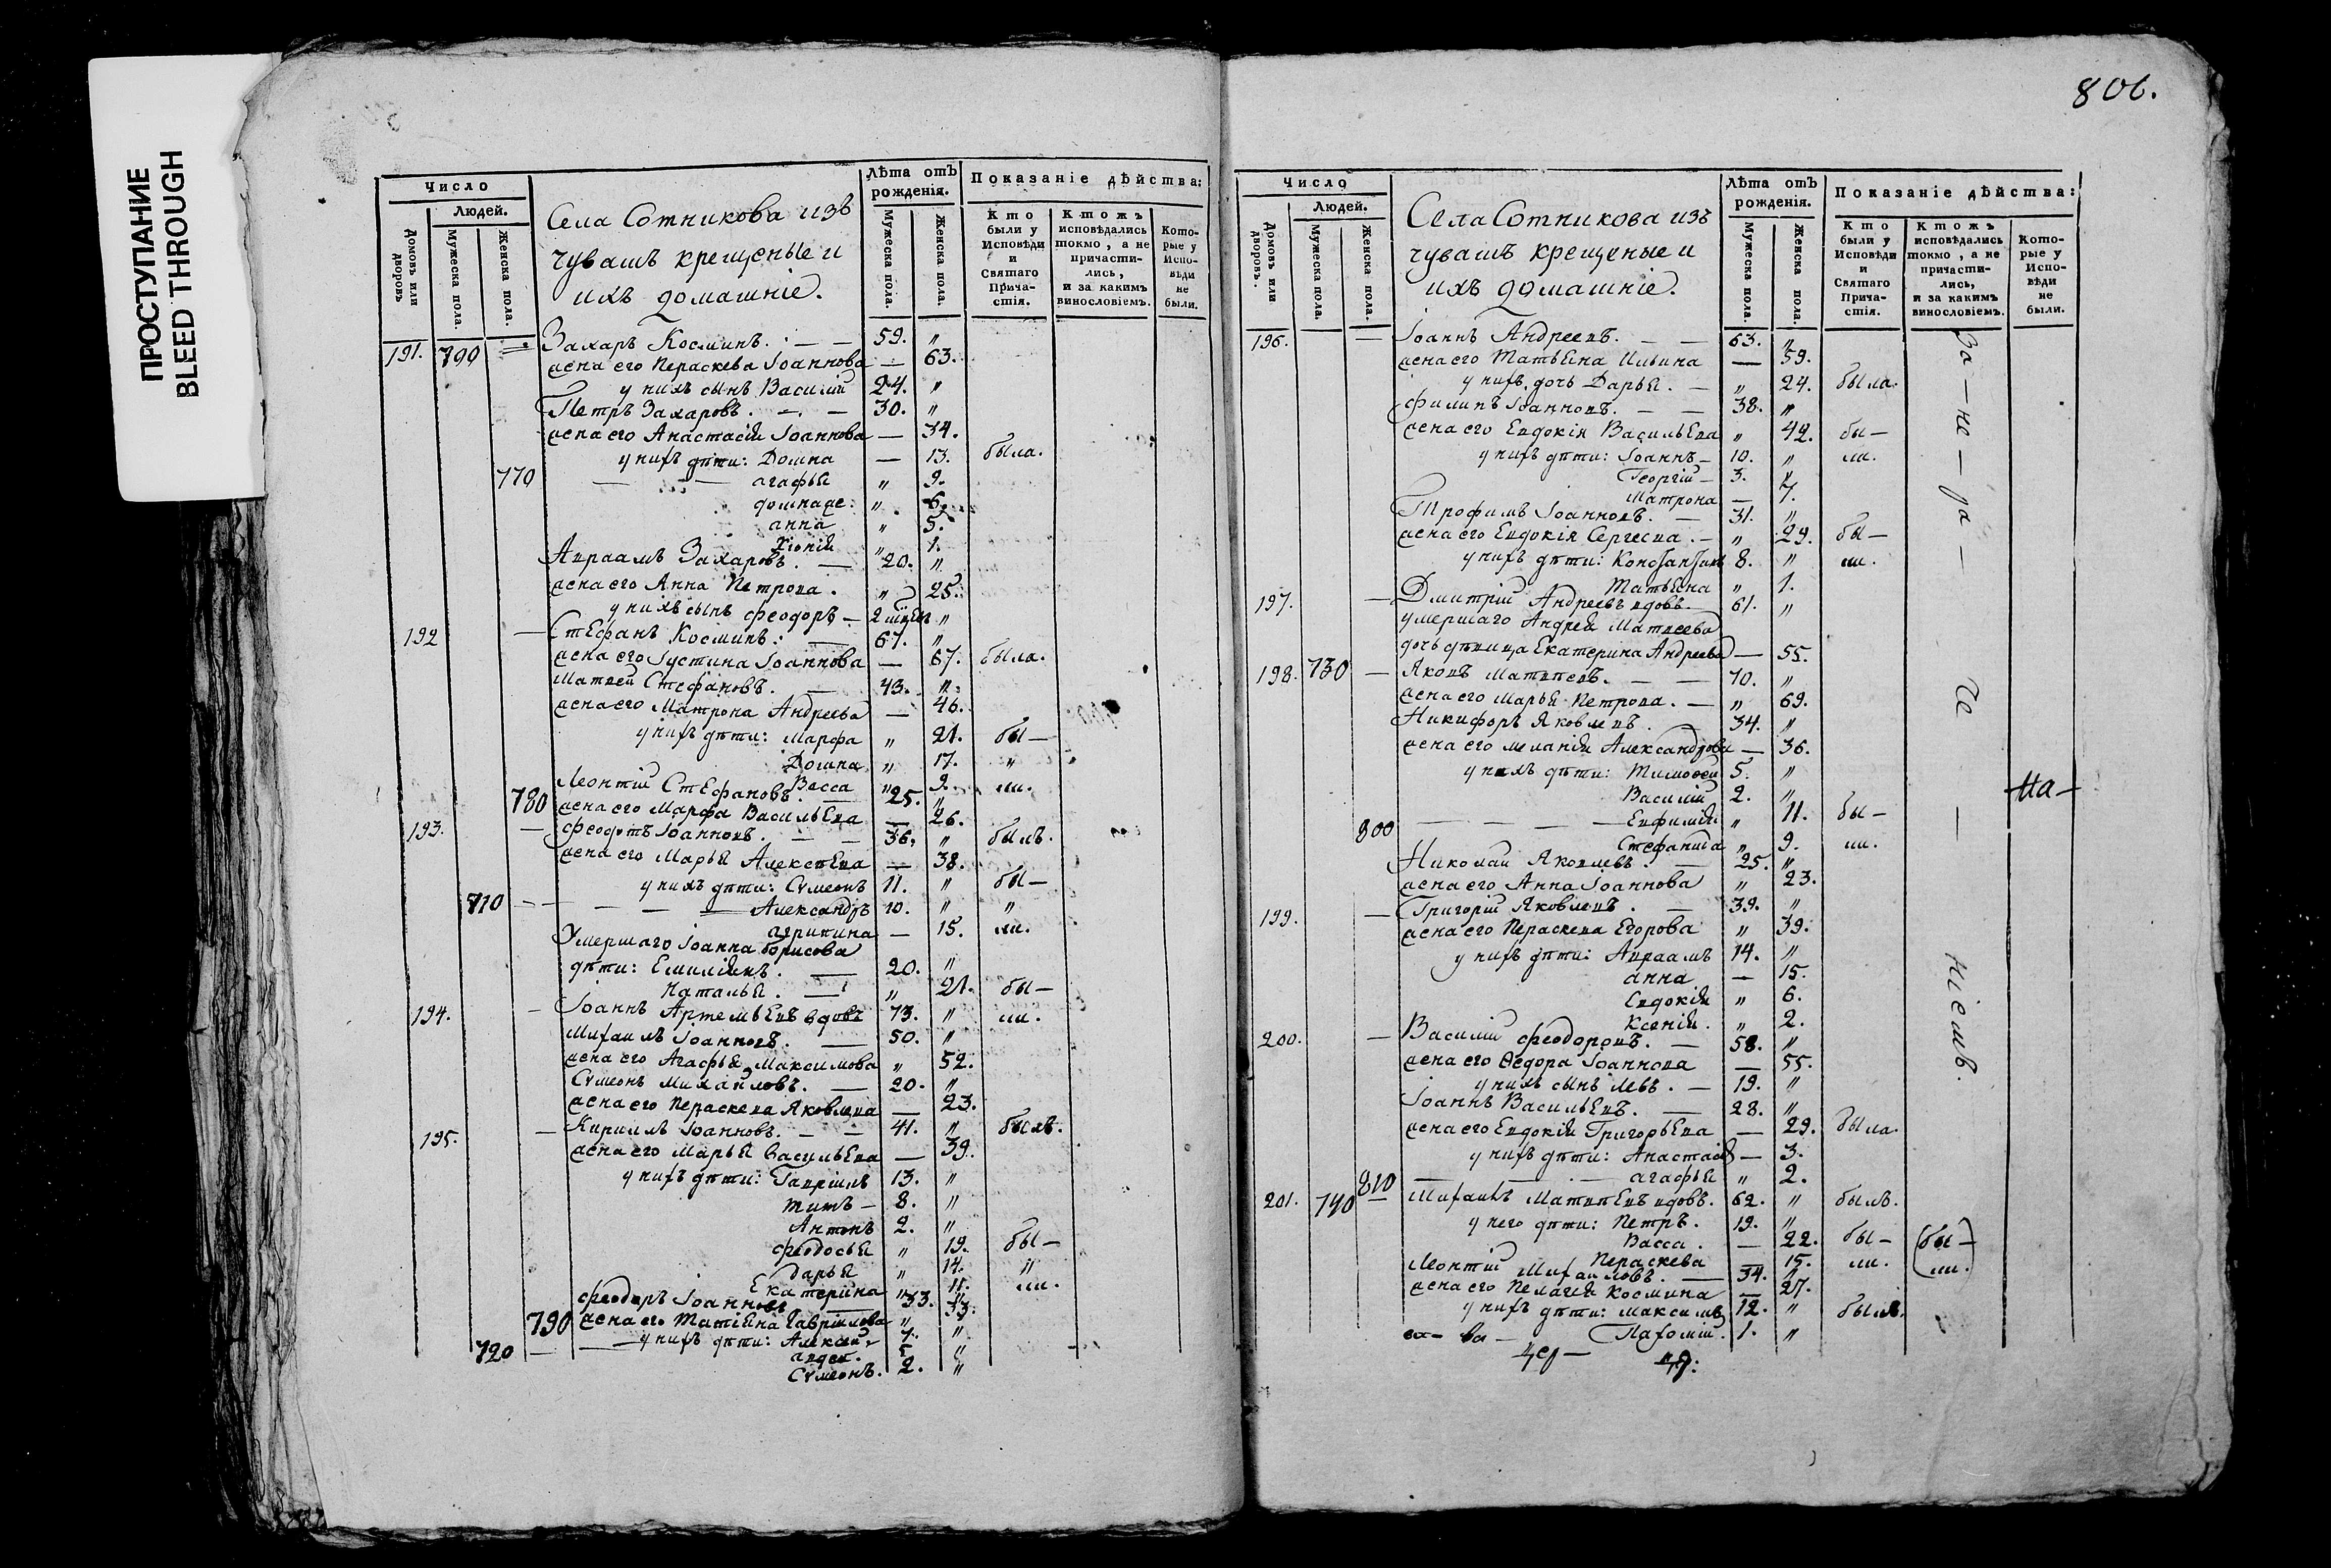 806.
ПРОСТУПАНИЕ
BLEED THROUGH
Число
Людей.
Домовъ или дворовъ
Мужеска пола.
Женска пола.
Села Сотникова изъ
чувашъ крещеные и
ихъ домашніе.
Лѣта отъ рожденія.
Мужеска пола.
Женска пола.
Показаніе дѣйства:
Кто были у Исповѣди и Святаго Прича-стія.
Ктожъ исповѣдались токмо, а не причасти-лись, и за какимъ винословіемъ.
Кото-рые у Испо-вѣди не были.
191. 700 Захаръ Косминъ. 59. "
жена его Пераскева Іоаннова — 63.
у нихъ сынъ Василій 24. "
Петръ Захаровъ. 30. "
жена его Анастасія Іоаннова — 34.
у нихъ дѣти: Домна — 13. была.
770 агафья " 9.
домнаже. " 6.
анна " 5.
Хіонія " 1.
Авраамъ Захаровъ. 20. "
жена его Анна Петрова. " 25.
у нихъ сынъ феодоръ — 2 "
192 Стефанъ Косминъ. 67. "
жена его Іустина Іоаннова — 67. была.
Матвей Стефановъ. 43. "
жена его Матрона Андреева — 46.
у нихъ дѣти: Марфа " 21. бы—
Домна " 17. "
Васса " 9. ли.
Леонтій Стефановъ. 25. "
780 жена его Марфа Васильева — 26.
193. феодотъ Іоанновъ. 36. " былъ.
жена его Марья Алексѣева — 38.
у нихъ дѣти: Сумеонъ 11. " бы—
710 Александръ 10. " "
агрипина — 15. ли.
Умершаго Іоанна борисова
дѣти: Емиліянъ. 20. "
Наталья. " 21. бы—
194. Іоаннъ Артемьевъ вдовъ 73. " ли.
Михаилъ Іоанновъ. 50. "
жена его Агафья Максимова " 52.
Сумеонъ Михайловъ. 20. "
жена его Пераскева Яковлева — 23.
195. Кириллъ Іоанновъ. 41. " былъ.
жена его Марья Васильева — 39.
у нихъ дѣти: Гавріилъ 13. "
титъ — 8. "
Антонъ 2. "
феодосья " 19. бы—
дарья " 14. "
Екатерина " 11. ли.
феодоръ Іоанновъ 33. "
790 жена его Татіяна Гавріилова " 33.
720 у нихъ дѣти: Алексій 7. "
авдей. 5 "
Сумеонъ. 2. "
Число
Людей.
Домовъ или дворовъ.
Мужеска пола.
Женска пола.
Села Сотникова изъ
чувашъ крещеные и
ихъ домашніе.
Лѣта отъ рожденія.
Мужеска пола.
Женска пола.
Показаніе дѣйства:
Кто были у Исповѣди и Святаго Прича-стія.
Ктожъ исповѣдались токмо, а не причасти-лись, и за какимъ винословіемъ.
Кото-рые у Испо-вѣди не были.
196. Іоаннъ Андреевъ. 63. "
жена его Татьяна Ильина — 59.
у нихъ дочь Дарья. — " 24. была.
филипъ Іоанновъ. 38. "
жена его Евдокія Васильева " 42. бы—
у нихъ дѣти: Іоаннъ — 10. " ли.
Георгій — 3. "
Матрона — 7.
Трофимъ Іоанновъ. 31. "
жена его Евдокія Сергеева. — " 29. бы—
у нихъ дѣти: Константинъ 8. " ли.
Татьяна " 1.
197. Дмитрій Андреевъ вдовъ. 61. "
умершаго Андрея Матвеева
дочь девица Екатерина Андреева — 55.
198. 730 Яковъ Матвеевъ. 70. "
жена его Марья Петрова. — " 69.
Никифоръ Яковлевъ 34. "
жена его меланія Александрова — 36.
у нихъ дѣти: Тимофей 5. "
Василій 2. "
Евфимія " 11. бы—
800 Стефанида " 9. ли.
Николай Яковлевъ. 25. "
жена его Анна Іоаннова " 23.
199. Григорій Яковлевъ. 39. "
жена его Пераскева Егорова " 39.
у нихъ дѣти: Авраамъ 14. "
анна — 15.
Евдокія " 6.
Ксенія. " 2.
200. Василій феодоровъ. 58. "
жена его Ѳедора Іоаннова — 55.
у нихъ сынъ левъ. — 19. "
Іоаннъ Васильевъ. 28. "
жена его Евдокія Григорьева — 29. была.
у нихъ дѣти: Анастасія — 3.
810 агафья " 2.
201. 740 Михаилъ Матвѣевъ вдовъ. 62. " былъ.
у него дѣти: Петръ. 19. "
Васса. — 22. бы— (бы—
Пераскева — 15. ли. ли.)
Леонтій Михайловъ. 34. "
жена его Пелагія Космина — 27.
у нихъ дѣти: максимъ 12. " былъ.
Пахомій. 1. "
За — не — ра — че — ніемъ.